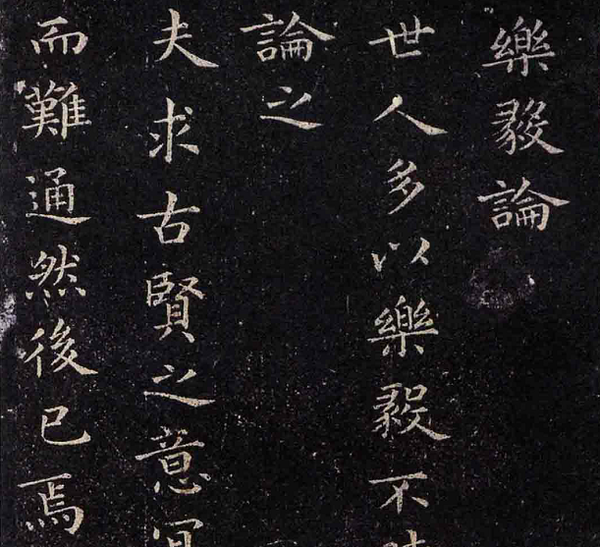 樂毅論
世人多以樂毅不
論之
夫求古賢之意宜
而難通然後已焉